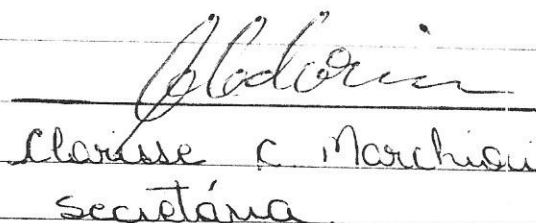 Clarisse C Marchiori
Secretária